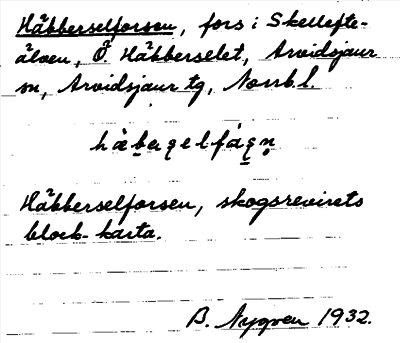 Häbberselforsen, fors i Skellefte-
älven, Ö. Häbberselet, Arvidsjaur
sn, Arvidsjaur tg, Norrb. l.
hàbaʂelfáʂn̥
Häbberselforsen, skogsrevirets
block-karta.
B. Nygren 1932.